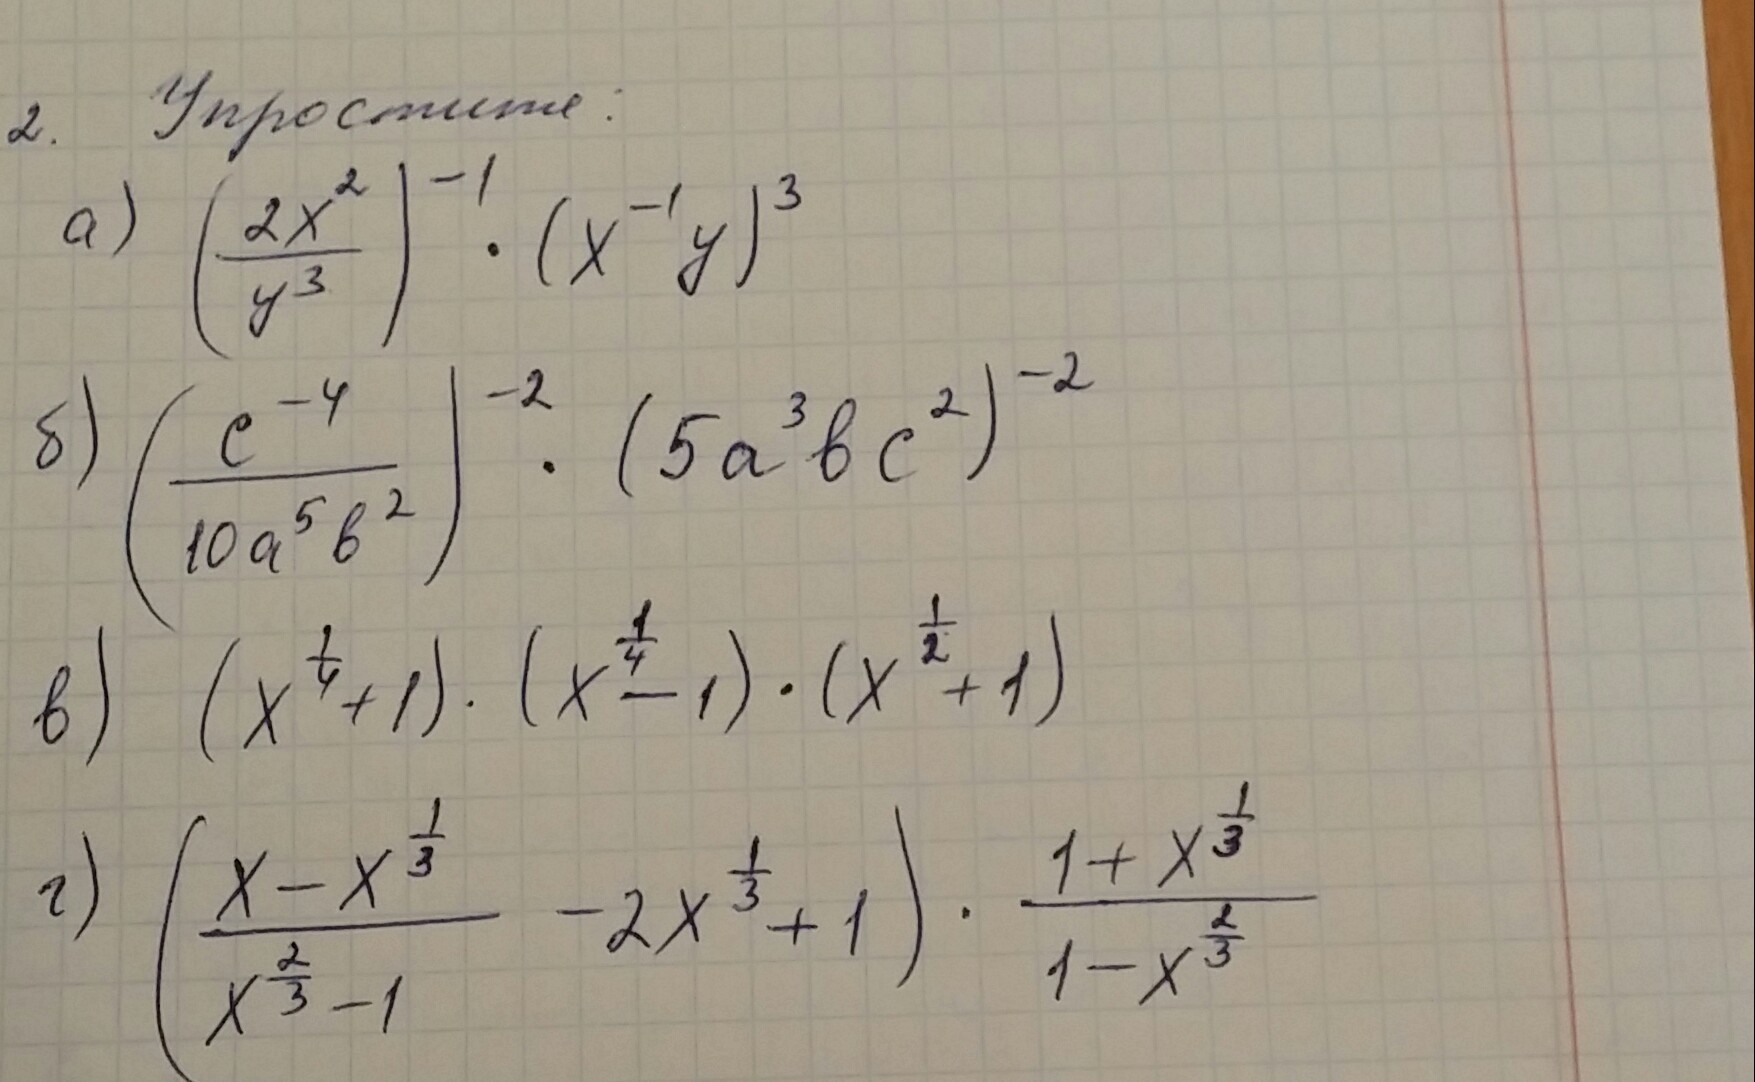 2. Упростите:
а) (2x²/y³)⁻¹ · (x⁻¹y)³
б) (c⁻⁴/10a⁵b²)⁻² · (5a³bc²)⁻²
в) (x^(1/4) + 1) · (x^(1/4) − 1) · (x^(1/2) + 1)
г) ((x − x^(1/3))/(x^(2/3) − 1) − 2x^(1/3) + 1) · (1 + x^(1/3))/(1 − x^(2/3))